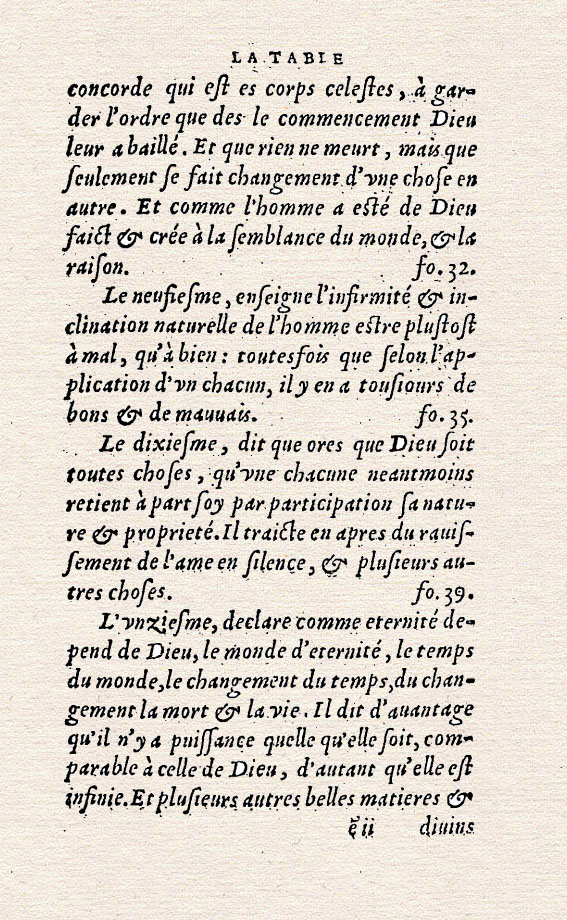 LA TABLE
concorde qui eſt es corps celeſtes, à gar-
der l'ordre que des le commencement Dieu
leur a baillé. Et que rien ne meurt, mais que
ſeulement ſe fait changement d'vne choſe en
autre. Et comme l'homme a eſté de Dieu
faict & crée à la ſemblance du monde, & la
raiſon. fo. 32.
Le neufieſme, enſeigne l'infirmité & in-
clination naturelle de l'homme eſtre pluſtoſt
à mal, qu'à bien: toutesfois que ſelon l'ap-
plication d'vn chacun, il y en a touſiours de
bons & de mauuais. fo. 35.
Le dixieſme, dit que ores que Dieu ſoit
toutes choſes, qu'vne chacune neantmoins
retient à part ſoy par participation ſa natu-
re & proprieté. Il traicte en apres du rauiſ-
ſement de l'ame en ſilence, & pluſieurs au-
tres choſes. fo. 39.
L'vnzieſme, declare comme eternité de-
pend de Dieu, le monde d'eternité, le temps
du monde, le changement du temps, du chan-
gement la mort & la vie. Il dit d'auantage
qu'il n'y a puiſſance quelle qu'elle ſoit, com-
parable à celle de Dieu, d'autant qu'elle eſt
infinie. Et pluſieurs autres belles matieres &
ẽ ii diuins